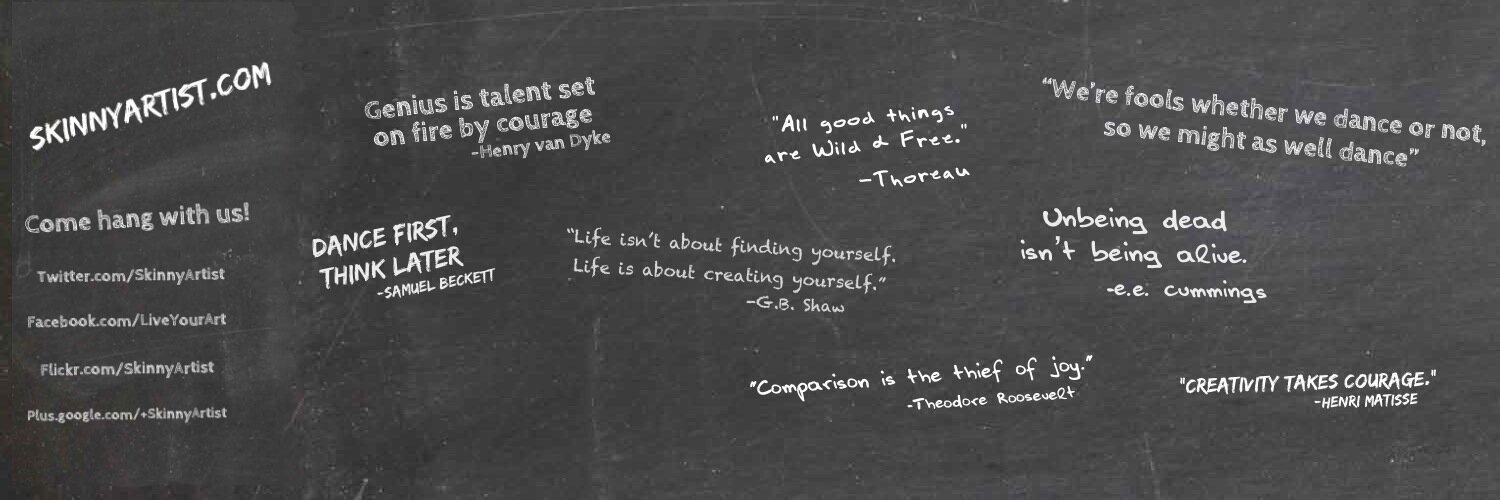 SKINNYARTIST.COM
Come hang with us!
Twitter.com/SkinnyArtist
Facebook.com/LiveYourArt
Flickr.com/SkinnyArtist
Plus.google.com/+SkinnyArtist
Genius is talent set
on fire by courage
-Henry van Dyke
DANCE FIRST,
THINK LATER
-SAMUEL BECKETT
"All good things
are Wild & Free."
-Thoreau
"Life isn't about finding yourself.
Life is about creating yourself."
-G.B. Shaw
"We're fools whether we dance or not,
so we might as well dance"
Unbeing dead
isn't being alive.
-e.e. cummings
"Comparison is the thief of joy."
-Theodore Roosevelt
"CREATIVITY TAKES COURAGE."
-HENRI MATISSE